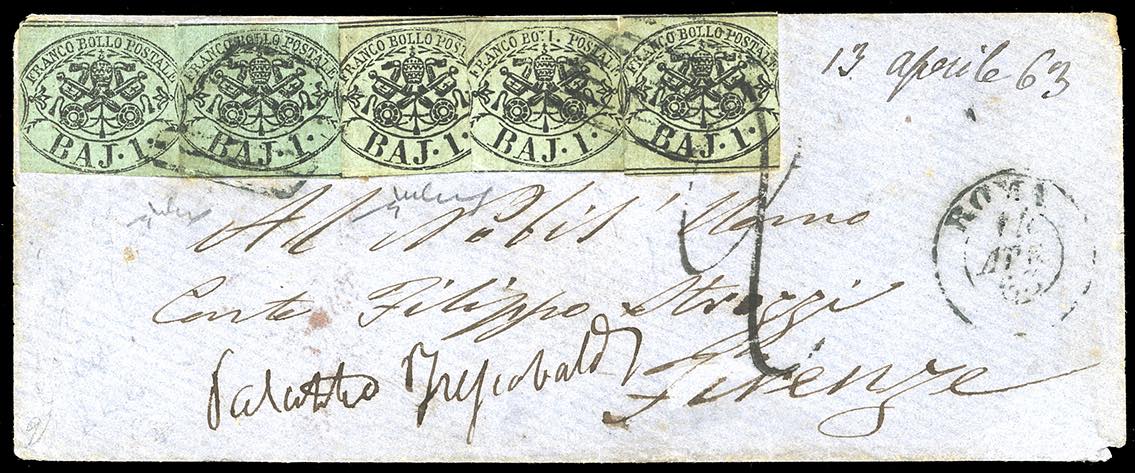 FRANCO BOLLO POSTALE
BAJ. 1.
FRANCO BOLLO POSTALE
BAJ. 1.
FRANCO BOLLO POST
BAJ. 1.
FRANCO BOLL POSTALE
BAJ. 1.
FRANCO BOLLO POSTALE
BAJ. 1.
13 aprile 63
ROMA
Al Nobil' Uomo
Conte Filippo Strozzi
Firenze
Palazzo Frescobaldi